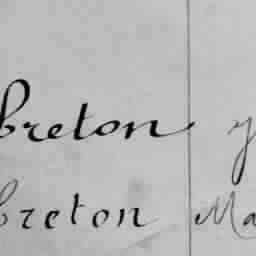 breton y
breton Ma